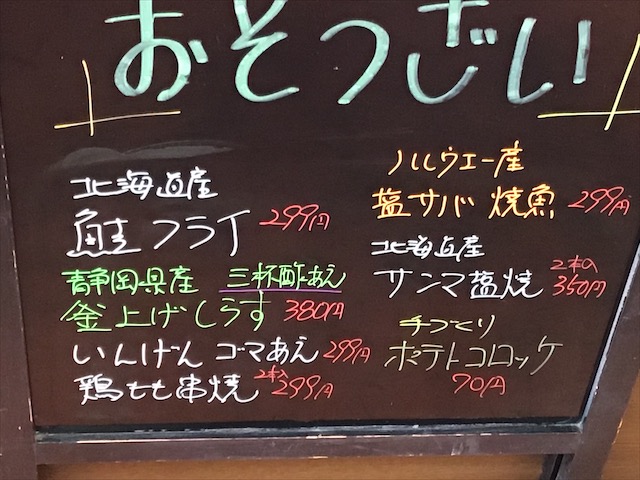 おそうざい
北海道産
鮭フライ 299円
静岡県産 三杯酢あえ
釜上げしらす 380円
いんげんゴマあえ 299円
鶏もも串焼 2本入 299円
ノルウエー産
塩サバ焼魚 299円
北海道産
サンマ塩焼 2本入 350円
手づくり
ポテトコロッケ
70円